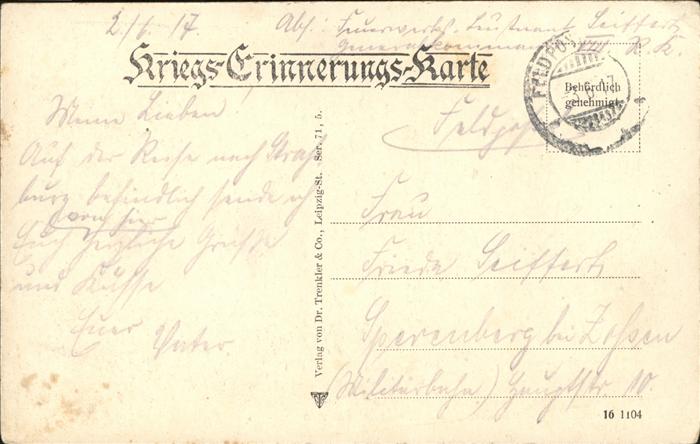 2./6. 17. Abs: Feuerwerks-Leutnant Seiffert
Generalkommando XXII. R. K.
Kriegs-Erinnerungs-Karte
FELDPOST
Behördlich
genehmigt.
Meine Lieben
Auf der Reise nach Straß-
burg befindlich sende ich
von hier
Euch herzliche Grüße
und Küsse
Euer
Vater.
Verlag von Dr. Trenkler & Co., Leipzig-St. Ser. 71, 5.
Feldpost
Frau
Frieda Seiffert
Sperenberg bei Zossen
(Militärbahn) Hauptstr. 10.
16 1104